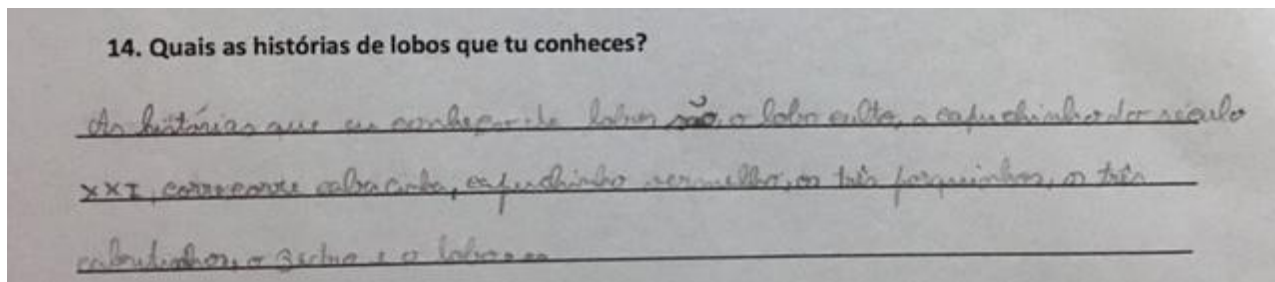 14. Quais as histórias de lobos que tu conheces?
As histórias que eu conheço de lobos são, o lobo culto, a capuchinho do século
XXI, corre corre cabacinha, capuchinho vermelho, os três porquinhos, os três
cabritinhos, o Pedro e o lobo...